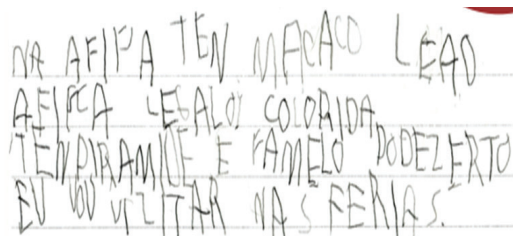 NA AFIPA TEN MACACO LEAO
AFIPCA LEGALOI COLORIDA
TENPIRAMIDE E CAMELO DODEZERTO
EU VOU VIZITAR NAS FERIAS.